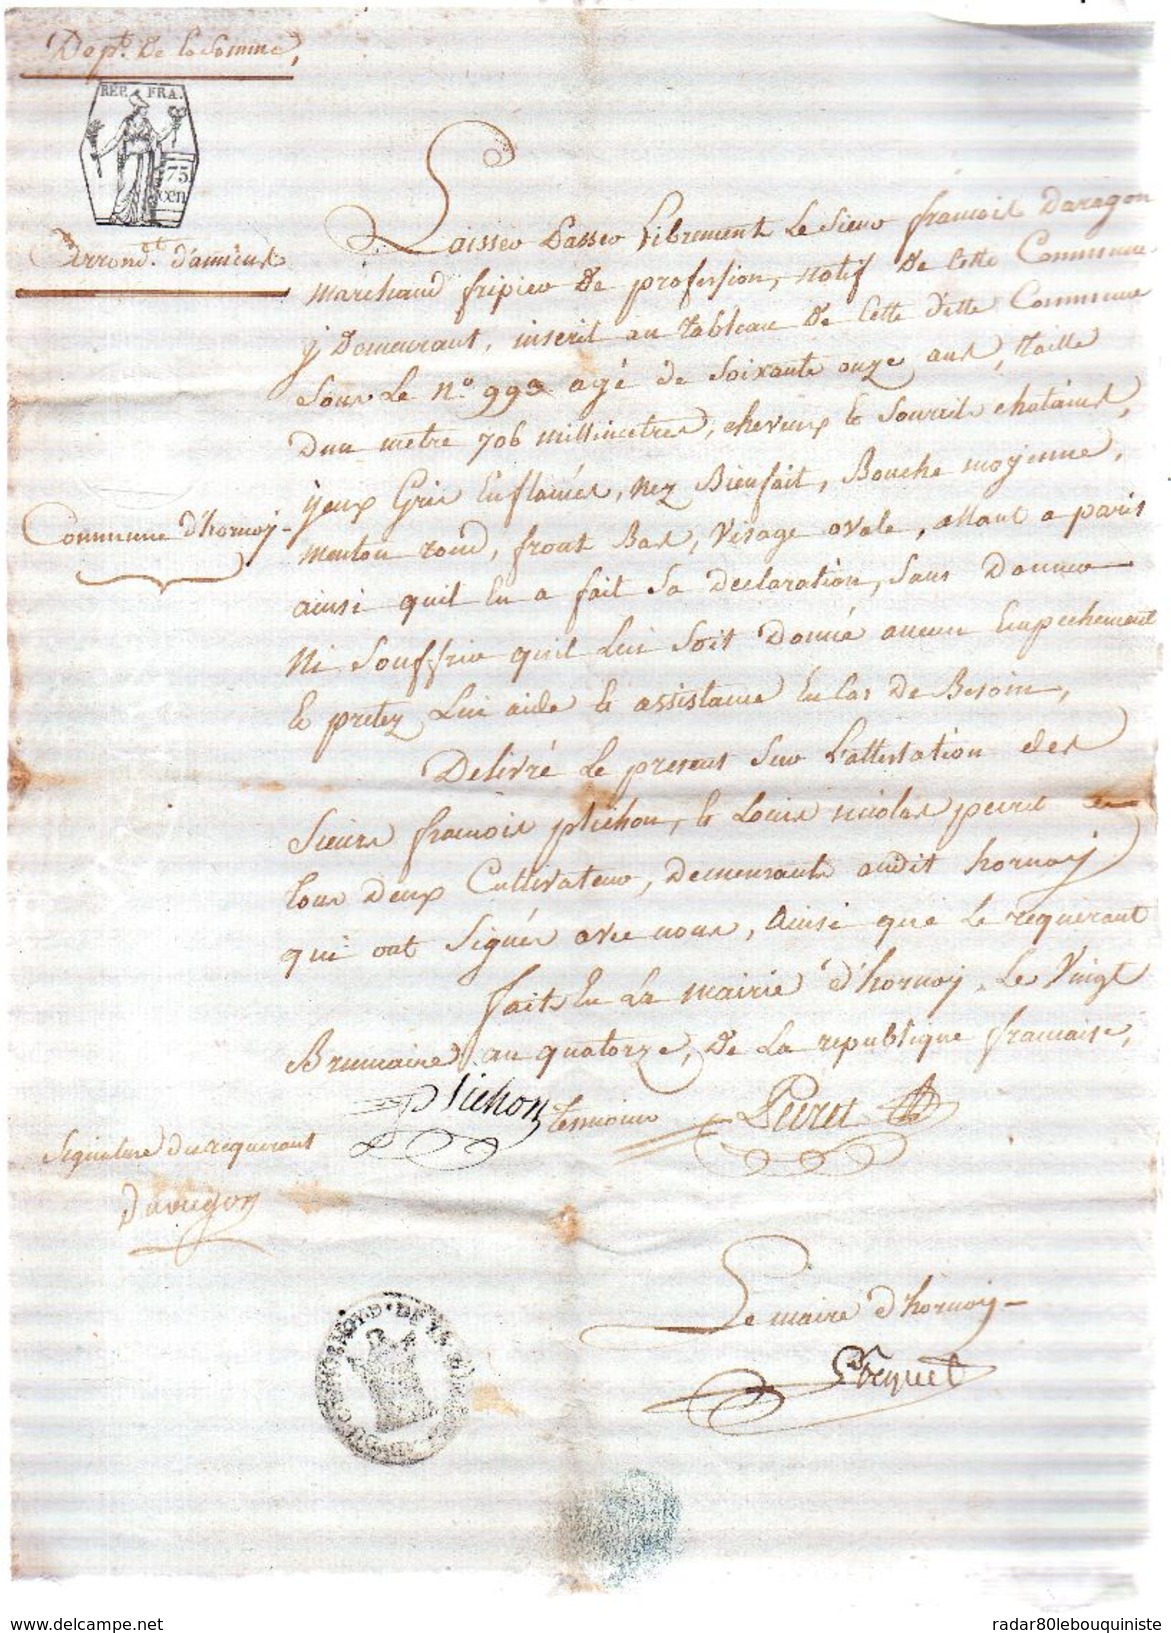 Dept. De la Somme,
REP. FRA.
75
cen
Arrond.t d'amiens
Commune d'hornoy
Laisser Passer Librement Le Sieur francois Daragon
marchand fripier De profession, natif De Cette Commune
y Demeurant, inscrit au tableau De Cette ditte Commune
Sous Le N.o 993 agé de Soixante onze ans, taille
Dun metre 706 millimetres, cheveux & Sourcils chatains,
yeux Gris Enflamés, nez Bienfait, Bouche moyenne,
menton rond, front Bas, visage ovale, allant a paris
ainsi quil En a fait Sa Declaration, Sans Donner
Ni Souffrir quil Lui Soit Donné aucun Empechement
& pretez Lui aide & assistance En Cas De Besoin,
Delivré Le present Sur L'attestation des
Sieurs francois plichon, & Louis nicolas peiret
tous Deux Cultivateur, Demeurants audit hornoy
qui ont Signés avec nous, Ainsi que Le requerant
fait En La mairie d'hornoy, Le Vingt
Brumaire an quatorze, De La republique francaise,
plichon temoins Peiret
Signature du requerant
Daragon
Le maire d'hornoy
delcampe.net
radar80lebouquiniste